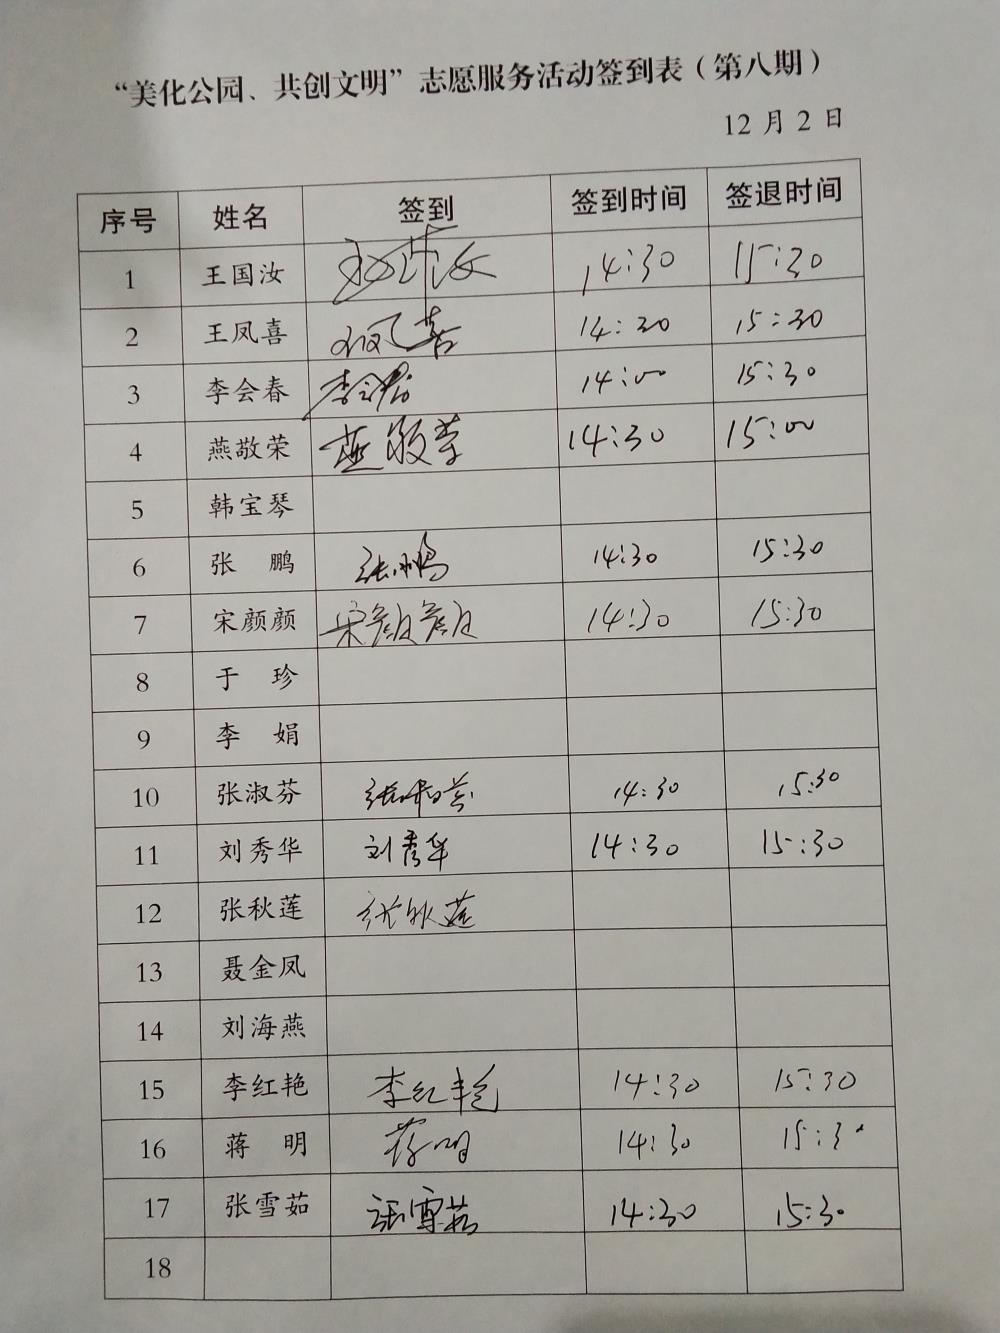 “美化公园、共创文明”志愿服务活动签到表（第八期）
12月2日
序号 姓名 签到 签到时间 签退时间
1 王国汝 14:30 15:30
2 王凤喜 王凤喜 14:30 15:30
3 李会春 李会春 14:00 15:30
4 燕敬荣 燕敬荣 14:30 15:00
5 韩宝琴
6 张 鹏 张鹏 14:30 15:30
7 宋颜颜 宋颜颜 14:30 15:30
8 于 珍
9 李 娟
10 张淑芬 张淑芬 14:30 15:30
11 刘秀华 刘秀华 14:30 15:30
12 张秋莲 张秋莲
13 聂金凤
14 刘海燕
15 李红艳 李红艳 14:30 15:30
16 蒋 明 蒋明 14:30 15:30
17 张雪茹 张雪茹 14:30 15:30
18